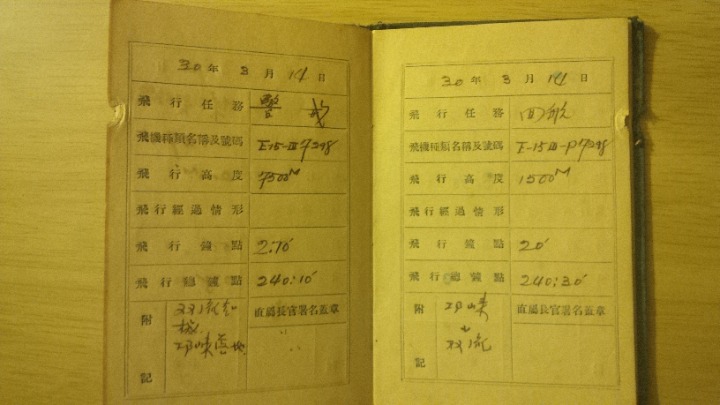 30 年 3 月 14 日
飛行任務 警戒
飛機種類名稱及號碼 E-15-III P7298
飛行高度 7500M
飛行經過情形
飛行鐘點 2:10'
飛行總鐘點 240:10'
附記 双流
邛崍
直屬長官署名蓋章
30 年 3 月 14 日
飛行任務 回航
飛機種類名稱及號碼 E-15-III-P7298
飛行高度 1500M
飛行經過情形
飛行鐘點 20'
飛行總鐘點 240:30'
附記 邛崍
双流
直屬長官署名蓋章